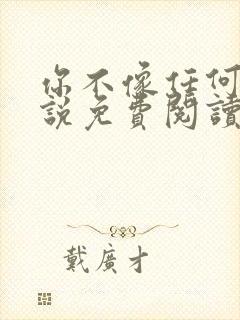 你不像任何
說免費閱讀
戴廣才